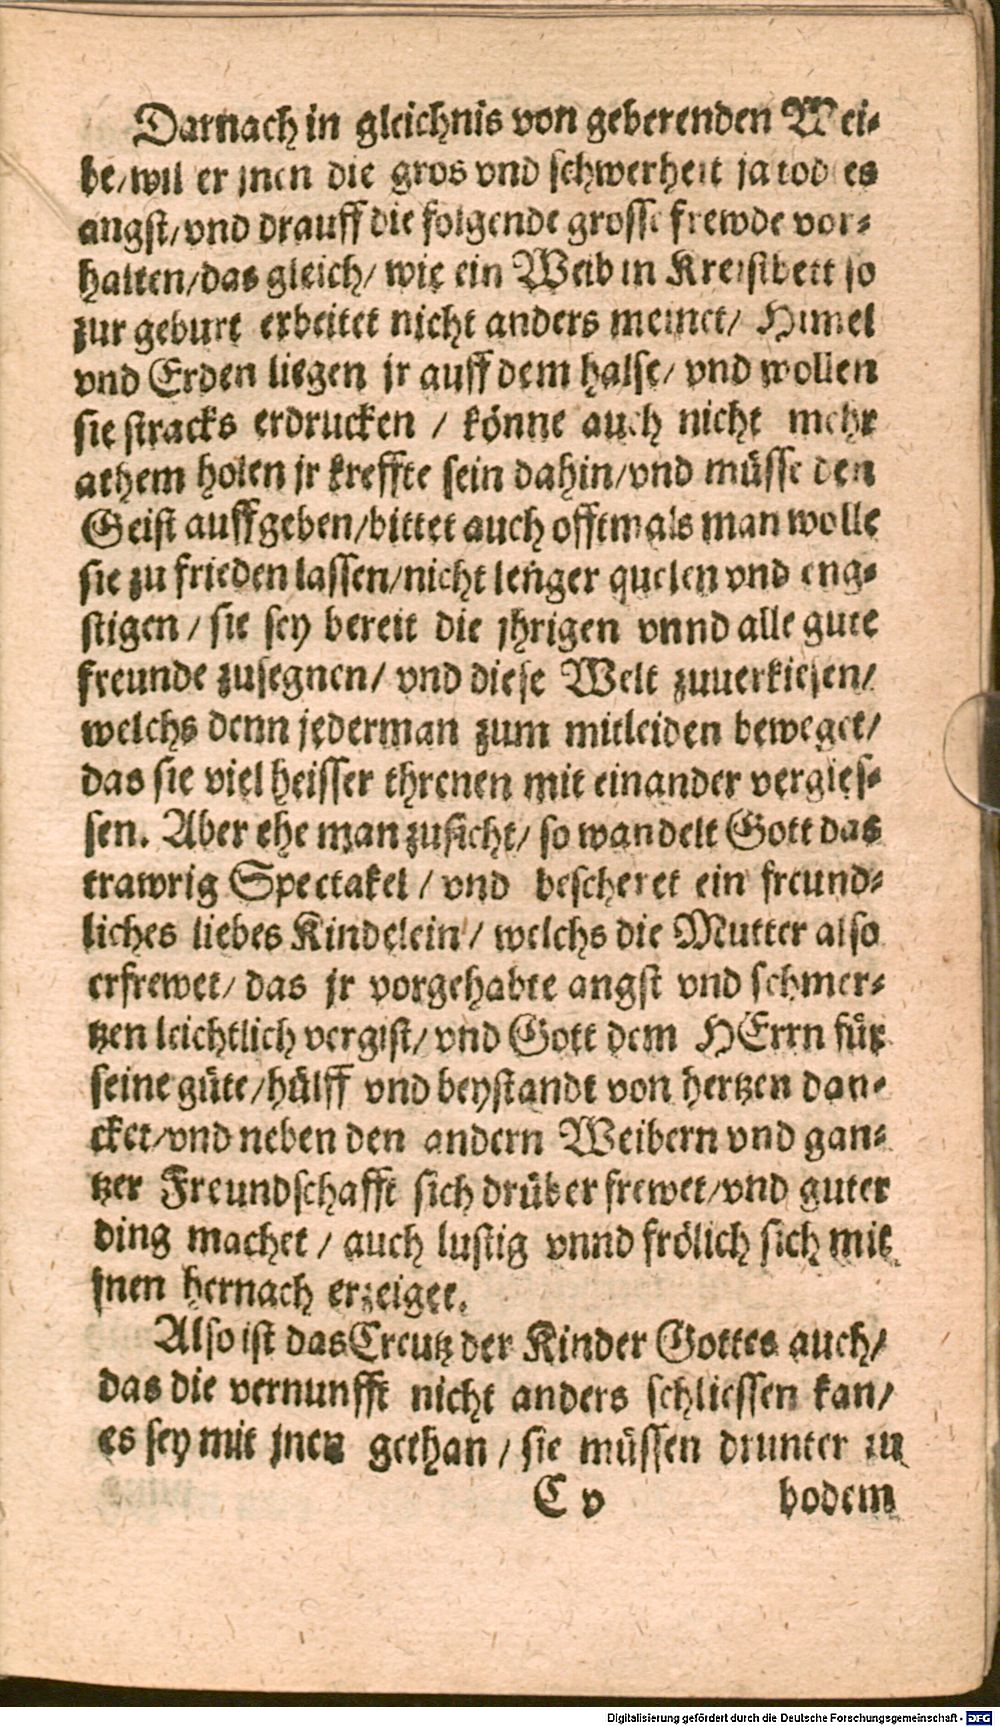 Darnach in gleichnis von geberenden Wei-
be/wil er jnen die gros vnd schwerheit ja todes
angst/vnd drauff die folgende grosse frewde vor-
halten/das gleich/ wie ein Weib in Kreistbett so
zur geburt erbeitet nicht anders meinet/ Himel
vnd Erden liegen jr auff dem halse/ vnd wollen
sie stracks erdrucken / könne auch nicht mehr
athem holen jr kreffte sein dahin/vnd müsse den
Geist auffgeben/bittet auch offtmals man wolle
sie zu frieden lassen/nicht lenger quelen vnd eng-
stigen / sie sey bereit die jhrigen vnnd alle gute
freunde zusegnen/ vnd diese Welt zuuerkiesen/
welchs denn jederman zum mitleiden beweget/
das sie viel heisser threnen mit einander vergies-
sen. Aber ehe man zusicht/ so wandelt Gott das
trawrig Spectakel / vnd bescheret ein freund-
liches liebes Kindelein / welchs die Mutter also
erfrewet/ das jr vorgehabte angst vnd schmer-
tzen leichtlich vergist/ vnd Gott dem HErrn für
seine güte/hülff vnd beystandt von hertzen dan-
cket/vnd neben den andern Weibern vnd gan-
tzer Freundschafft sich drüber frewet/vnd guter
ding machet / auch lustig vnnd frölich sich mit
jnen hernach erzeiget.
Also ist das Creutz der Kinder Gottes auch/
das die vernunfft nicht anders schliessen kan/
es sey mit jnen gethan / sie müssen drunter zu
C v bodem
Digitalisierung gefördert durch die Deutsche Forschungsgemeinschaft - DFG